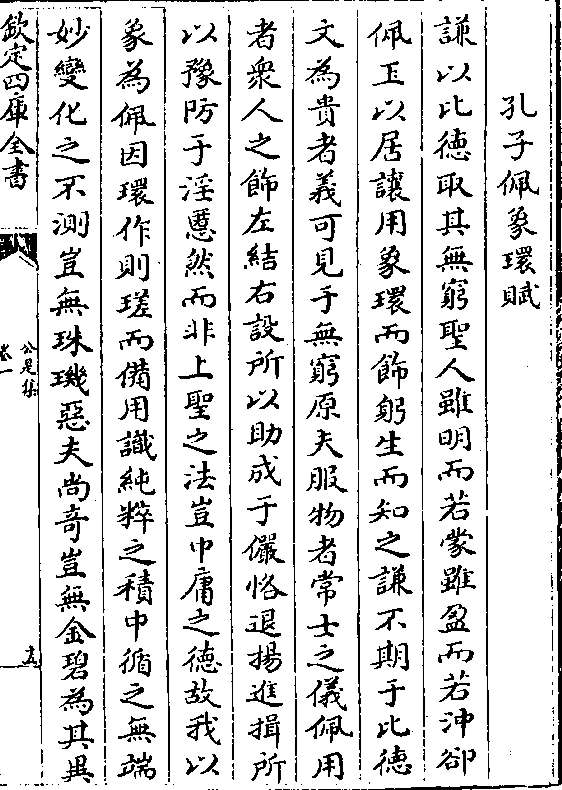 孔子佩象環賦
謙以比德取其無窮聖人雖明而若蒙雖盈而若沖卻
佩玉以居讓用象環而飾躬生而知之謙不期于比德
文為貴者義可見于無窮原夫服物者常士之儀佩用
者衆人之飾左結右設所以助成于儼恪退揚進揖所
以豫防于淫慝然而非上聖之法豈中庸之德故我以
象為佩因環作則瑳而備用識純粹之積中循之無端
妙變化之不測豈無珠璣惡夫尚奇豈無金碧為其異
欽定四庫全書
公是集
卷一
十五